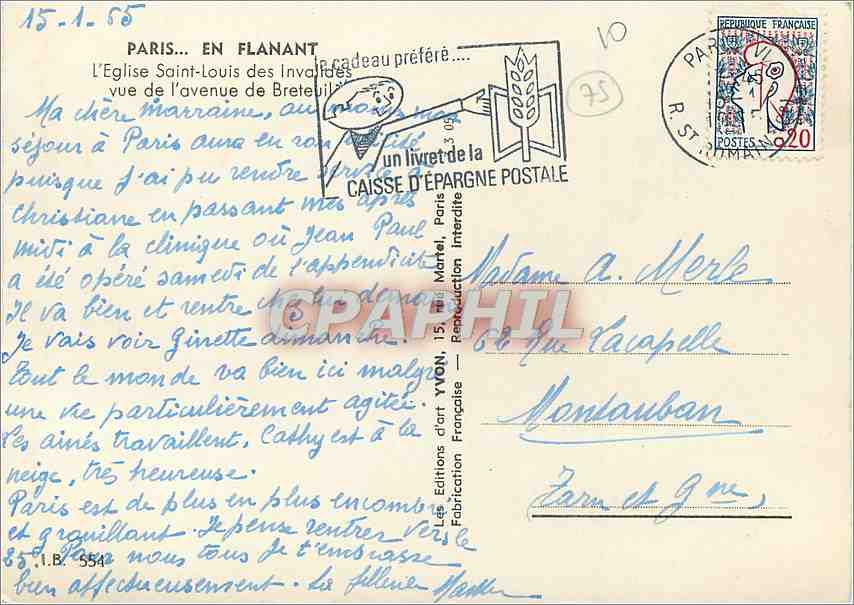 15-1-65
PARIS... EN FLANANT
L'Eglise Saint-Louis des Invalides
vue de l'avenue de Breteuil
Ma chère marraine, au moins mon
séjour à Paris aura eu son utilité
puisque j'ai pu rendre service à
Christiane en passant mes après
midi à la clinique où Jean Paul
a été opéré samedi de l'appendicite
Il va bien et rentre chez lui demain
Je vais voir Ginette dimanche.
Tout le monde va bien ici malgré
une vie particulièrement agitée.
Les ainés travaillent, Cathy est à la
neige, très heureuse.
Paris est de plus en plus encombré
et grouillant. Je pense rentrer vers le
25. Pour nous tous je t'embrasse
bien affectueusement. La filleule
I.B. 554
le cadeau préféré....
un livret de la
CAISSE D'ÉPARGNE POSTALE
75
PARIS VI
R. ST ROMAIN
RÉPUBLIQUE FRANÇAISE
POSTES
0,20
Les Editions d'art YVON, 15, rue Martel, Paris
Fabrication Française — Reproduction Interdite
3 05
Madame A. Merle
62 Rue Lacapelle
Montauban
Tarn et Gne
CPAPHIL